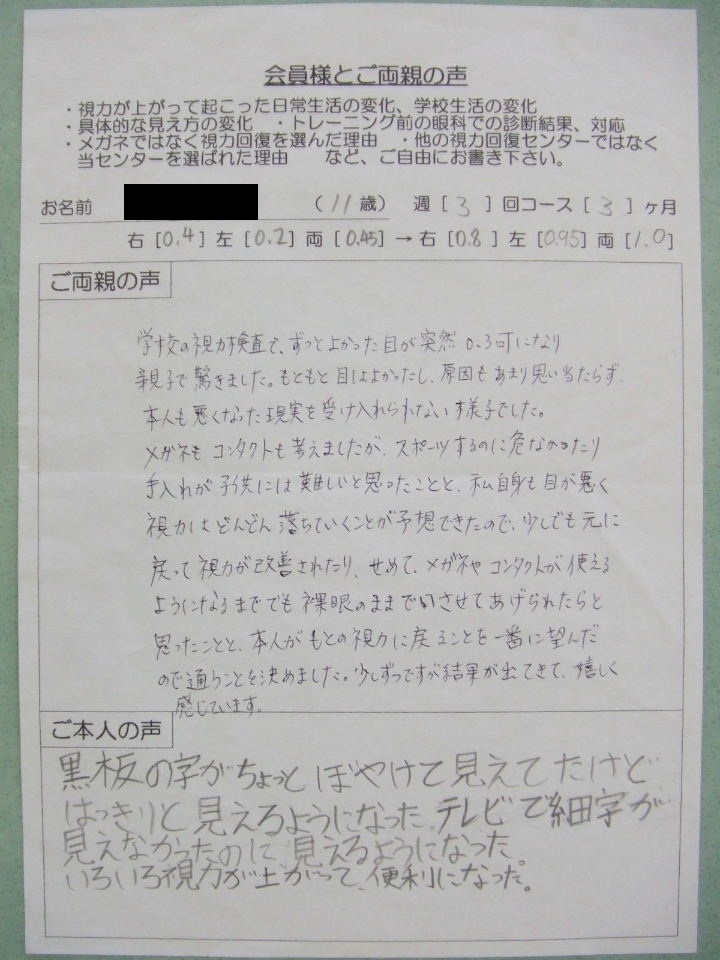 会員様とご両親の声
・視力が上がって起こった日常生活の変化、学校生活の変化
・具体的な見え方の変化　・トレーニング前の眼科での診断結果、対応
・メガネではなく視力回復を選んだ理由　・他の視力回復センターではなく
当センターを選ばれた理由　など、ご自由にお書き下さい。
お名前　（11歳）　週［3］回コース［3］ヶ月
右［0.4］左［0.2］両［0.45］→右［0.8］左［0.95］両［1.0］
ご両親の声
学校の視力検査で、ずっとよかった目が突然 0.3可になり
親子で驚きました。もともと目はよかったし、原因もあまり思い当たらず、
本人も悪くなった現実を受け入れられない様子でした。
メガネもコンタクトも考えましたが、スポーツするのに危なかったり
手入れが子供には難しいと思ったことと、私自身も目が悪く
視力はどんどん落ちていくことが予想できたので、少しでも元に
戻って視力が改善されたり、せめて、メガネやコンタクトが使える
ようになるまででも裸眼のままでいさせてあげられたらと
思ったことと、本人がもとの視力に戻ることを一番に望んだ
ので通うことを決めました。少しずつですが結果が出てきて、嬉しく
感じています。
ご本人の声
黒板の字がちょっとぼやけて見えてたけど
はっきりと見えるようになった。テレビで細字が
見えなかったのに、見えるようになった。
いろいろ視力が上がって、便利になった。